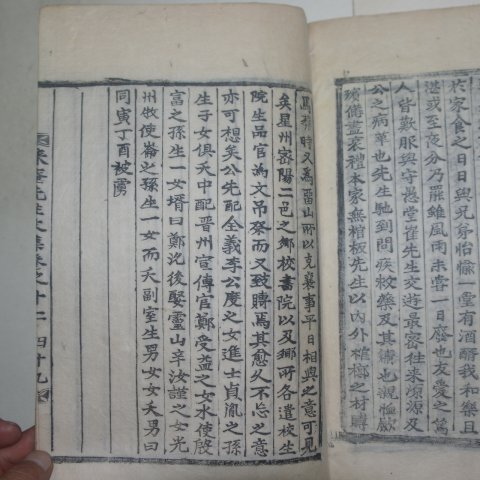 於家食之日日與兄弟怡愉一堂有酒酳我和樂且
湛或至夜分乃罷雖風雨未嘗一日廢也友愛之篤
人皆歎服與守愚堂崔先生交遊最密往來源源及
公之病革也先生馳到問疾救藥及其
殯備盡哀禮本家無棺板先生以內外槍榔之材賻
焉葬時又爲雷山所以克襄事平日相與之意可見
矣星州密陽二邑之鄕校書院以及鄕所各遣校生
院生品官爲文吊祭而又致賻焉其愈久不忘之意
亦可想矣公先配全義李公度之女進士貞胤之孫
生子女俱夭中配晋州宣傳官鄭受益之女水使殷
富之孫生一女壻曰鄭沇後娶靈山辛汝謹之女光
州牧使崙之孫生一女而夭副室生男女女夭男曰
同寅丁酉被虜
先生文集卷之十二 四十九